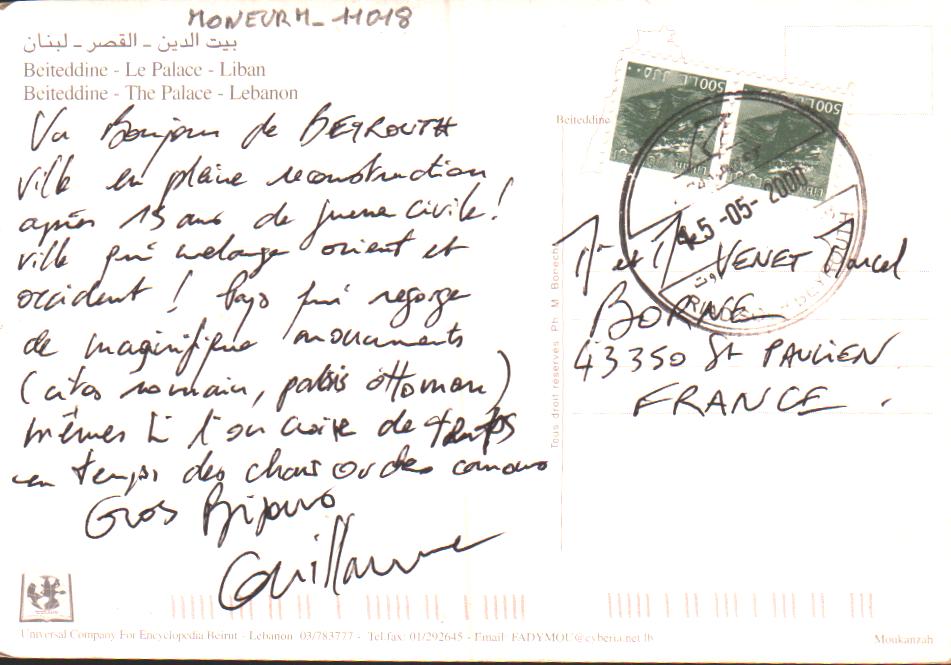 MONEURM-11018
بيت الدين - القصر - لبنان
Beiteddine - Le Palace - Liban
Beiteddine - The Palace - Lebanon
Un Bonjour de BEYROUTH
ville en pleine reconstruction
après 15 ans de guerre civile!
ville qui mélange orient et
occident! Pays qui regorge
de magnifique monuments
(cités romain, palais ottoman)
mêmes si l'on croise de temps
en temps des chars ou des canons
Gros Bijous
Guillaume
Beiteddine
500 L.L.
500 L.L.
5-05-2000
Mr et Mme VENET Marcel
BORNE
43350 St PAULIEN
FRANCE.
Tous droit reservés Ph. M. Bonech
Universal Company For Encyclopedia Beirut - Lebanon 03/783777 - Tel.fax: 01/292645 - Email FADYMOU@cyberia.net.lb
Moukanzah